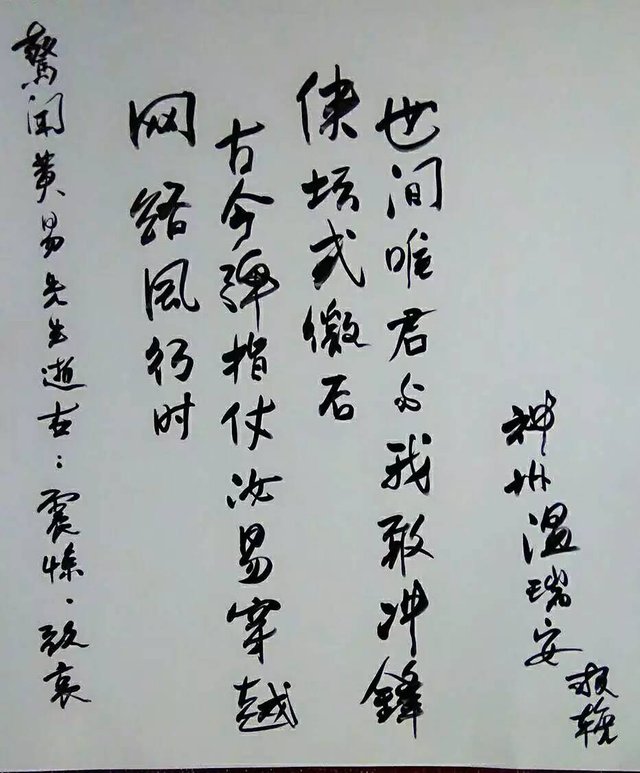 驚闻黄易先生逝去：震悚·致哀
网络風行时
古今弹指仗汝易穿越
侠坛式微后
世间唯君与我敢冲鋒
神州温瑞安
敬輓